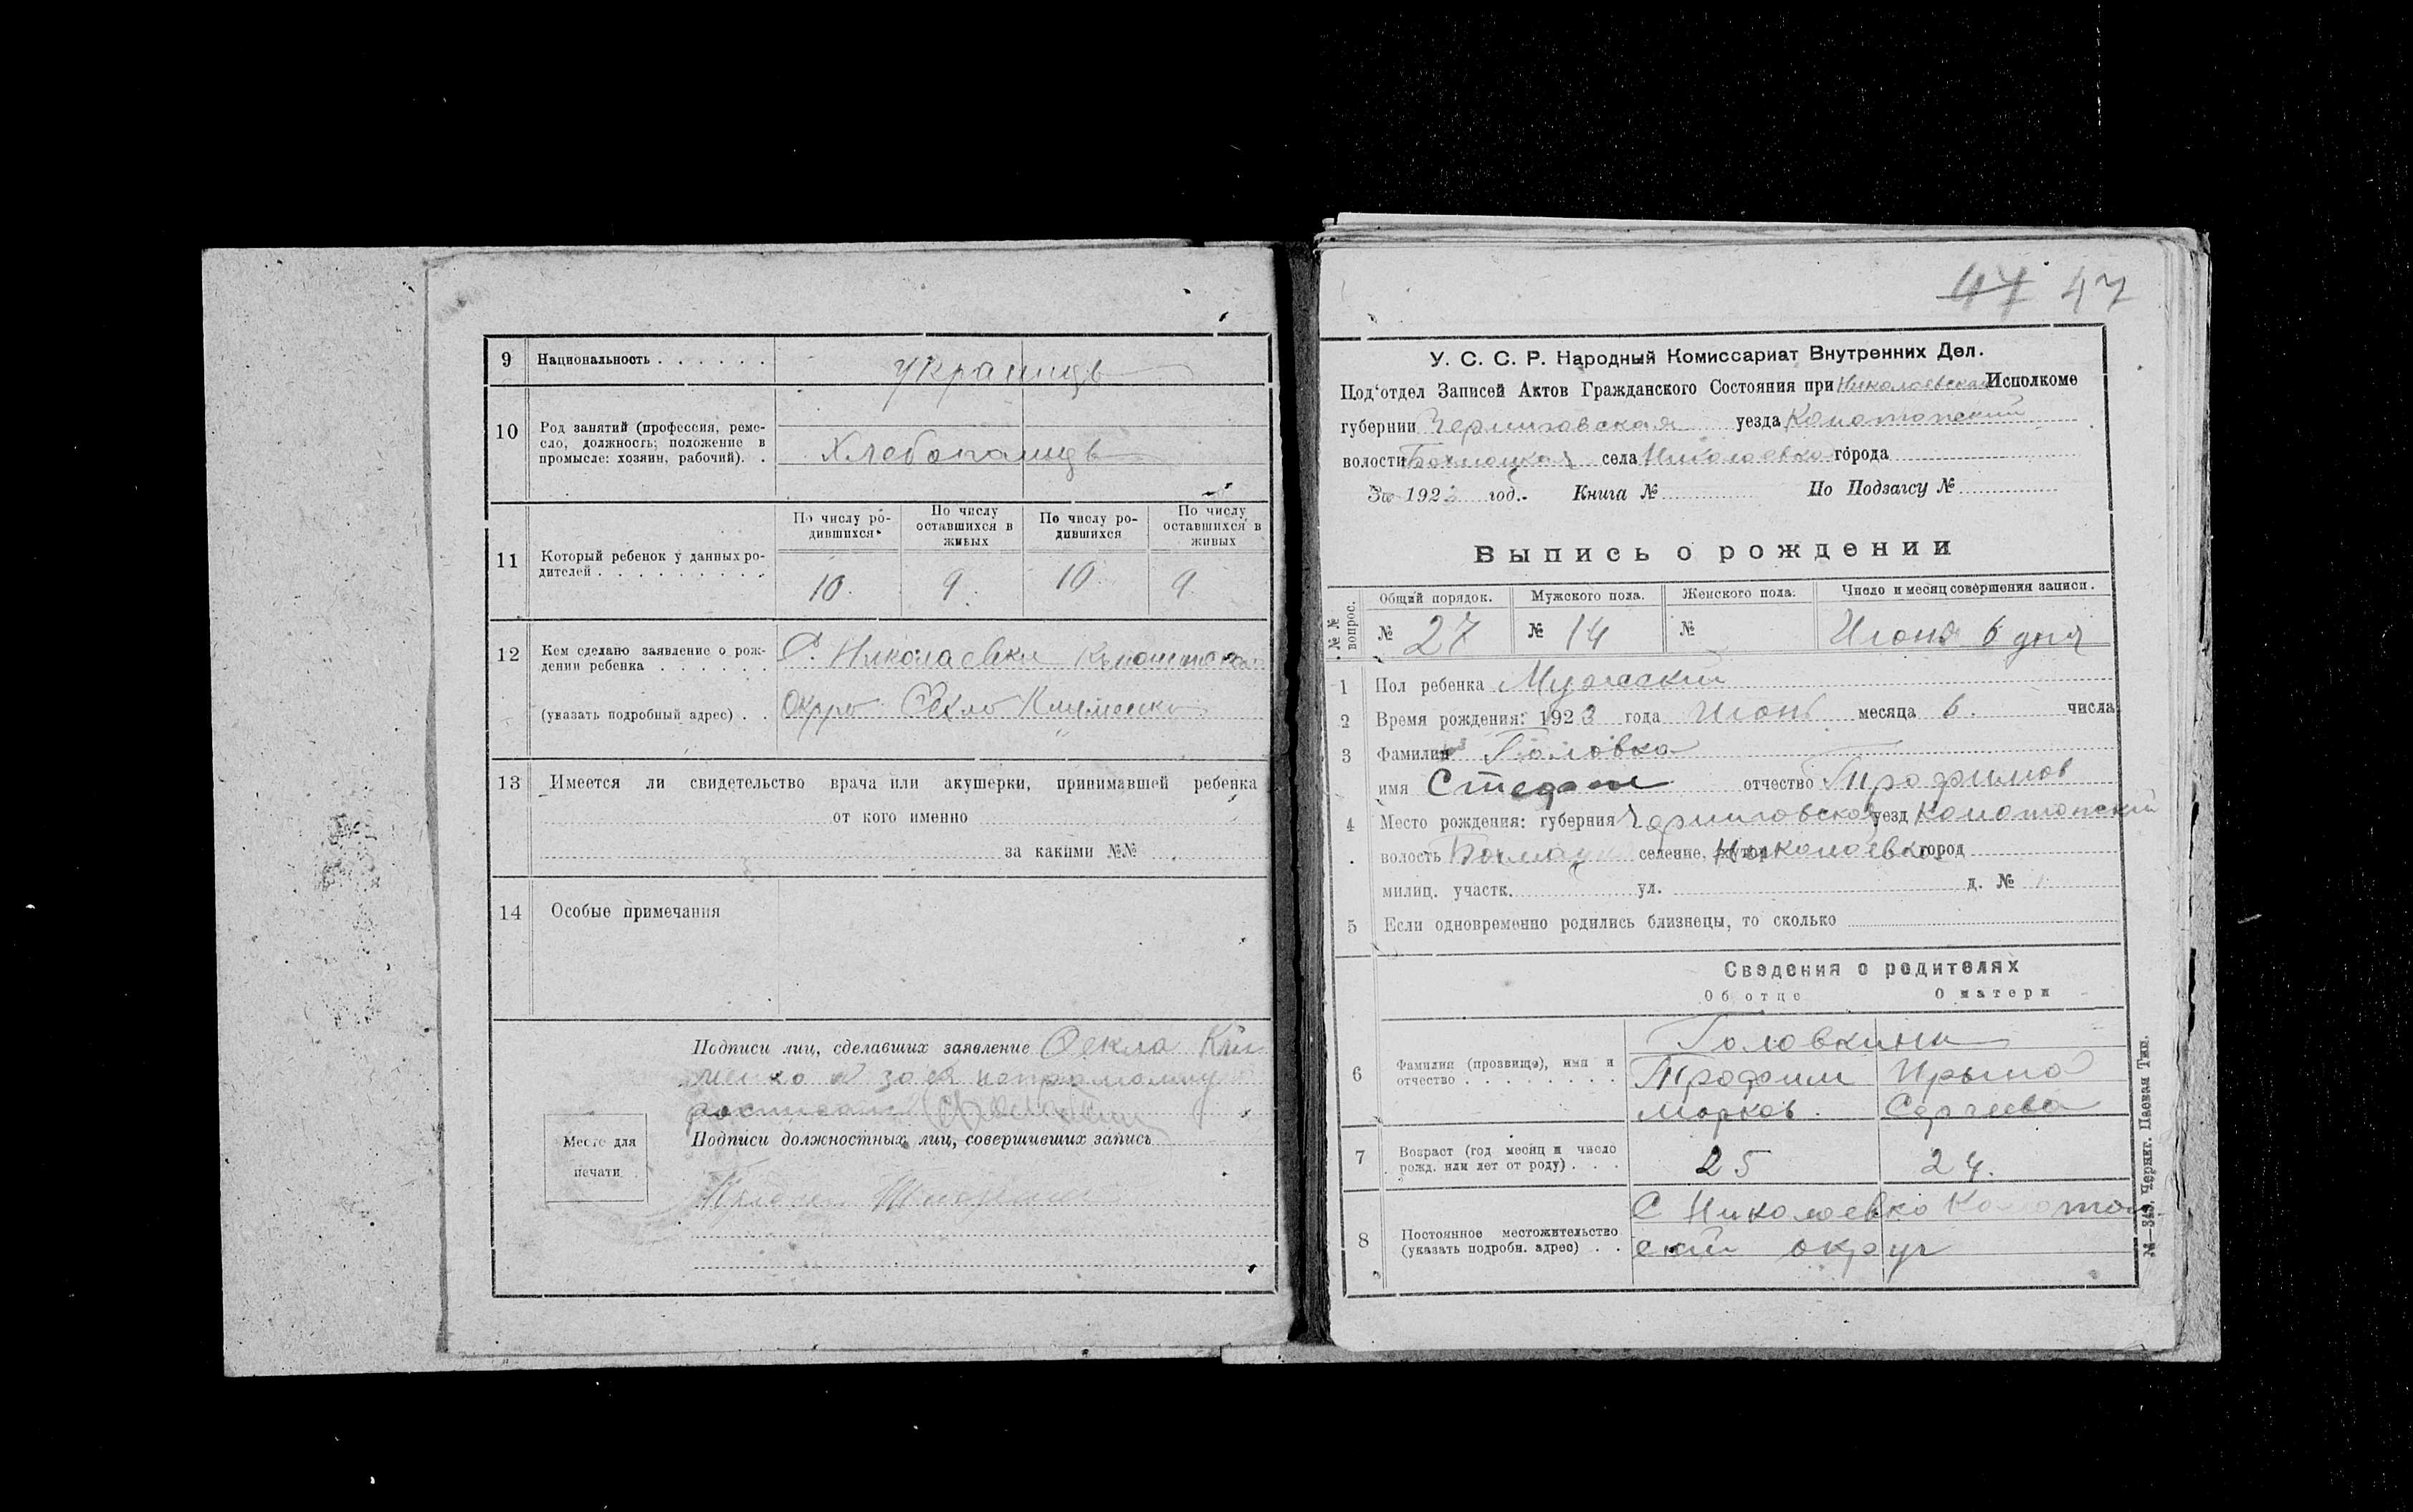 9 Национальность . . . . . .
украинцв
10 Род занятий (профессия, реме-
сло, должность; положение в
промысле: хозяин, рабочий). .
Хлебопашцв
11 Который ребенок у данных ро-
дителей . . . . . . . . .
По числу ро-
дившихся
По числу
оставшихся в
живых
По числу ро-
дившихся
По числу
оставшихся в
живых
10. 9. 10 9
12 Кем сделано заявление о рож-
дении ребенка . . . . . .
(указать подробный адрес) . .
С. Николаевки
Клименко
13 Имеется ли свидетельство врача или акушерки, принимавшей ребенка
от кого именно
за какими №№
14 Особые примечания
Подписи лиц, сделавших заявление Фекла Кли
менко а за ея
Место для
печати
Подписи должностных лиц, совершивших запись
47 47
У. С. С. Р. Народный Комиссариат Внутренних Дел.
Под‘отдел Записей Актов Гражданского Состояния при Николаевском Исполкоме
губернии Черниговская уезда Конотопский
волости Бахмацкая села Николаевка города
За 1923 год.. Книга № По Подзагсу №
Выпись о рождении
№№ вопрос.
Общий порядок. Мужского пола. Женского пола. Число и месяц совершения записи.
№ 27 № 14 № Июня 6 дня
1 Пол ребенка Мужский
2 Время рождения: 1923 года Июнь месяца 6. числа
3 Фамилия Головка
имя Стефан отчество Трофимов
4 Место рождения: губерния Черниговская уезд Конотопский
волость Бахмацк селение, хутор Николаевка город
милиц. участк. ул. д. №
5 Если одновременно родились близнецы, то сколько
Сведения о родителях
Об отце О матери
6 Фамилия (прозвище), имя и
отчество . . . . . . . .
Головкины
Трофим Ирына
Марков. Сергеева
7 Возраст (год месяц и число
рожд. или лет от роду) . . .
25 24.
8 Постоянное местожительство
(указать подробн. адрес) . .
С Николаевка Конотоп
ский округ
№—343, Черниг. Паевая Тип.